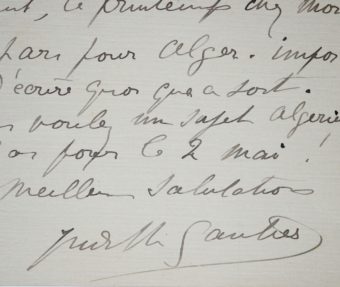 nt, ce printemps chez mon
pars pour Alger. impos
d'écrire quoi que ce soit.
voulez un sujet algérie
pour le 2 mai !
meilleu salutations
Judith Gautier